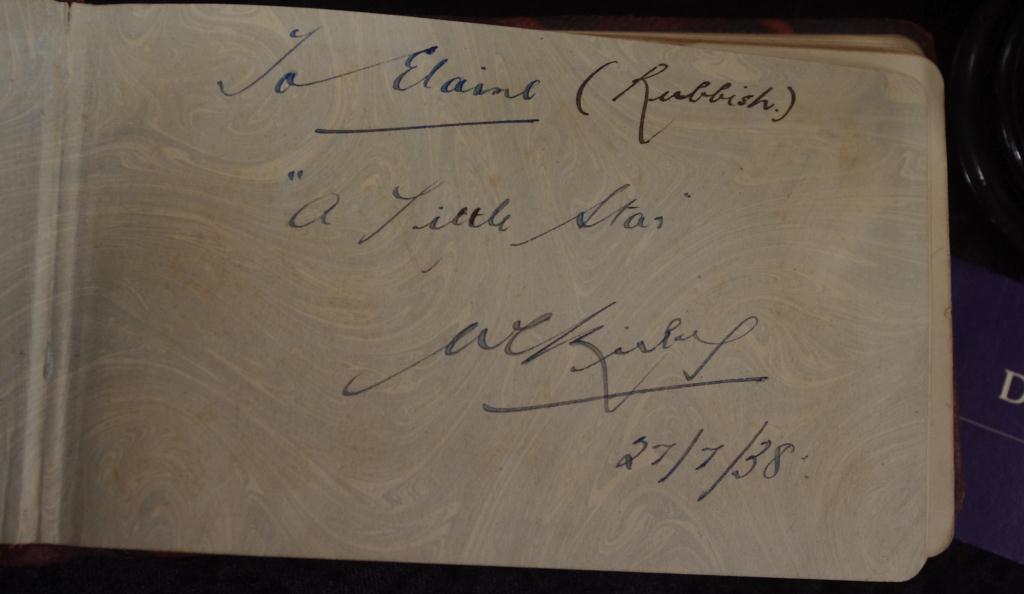 To Elaine (Rubbish.)
"A Little Star"
27/7/38.
D